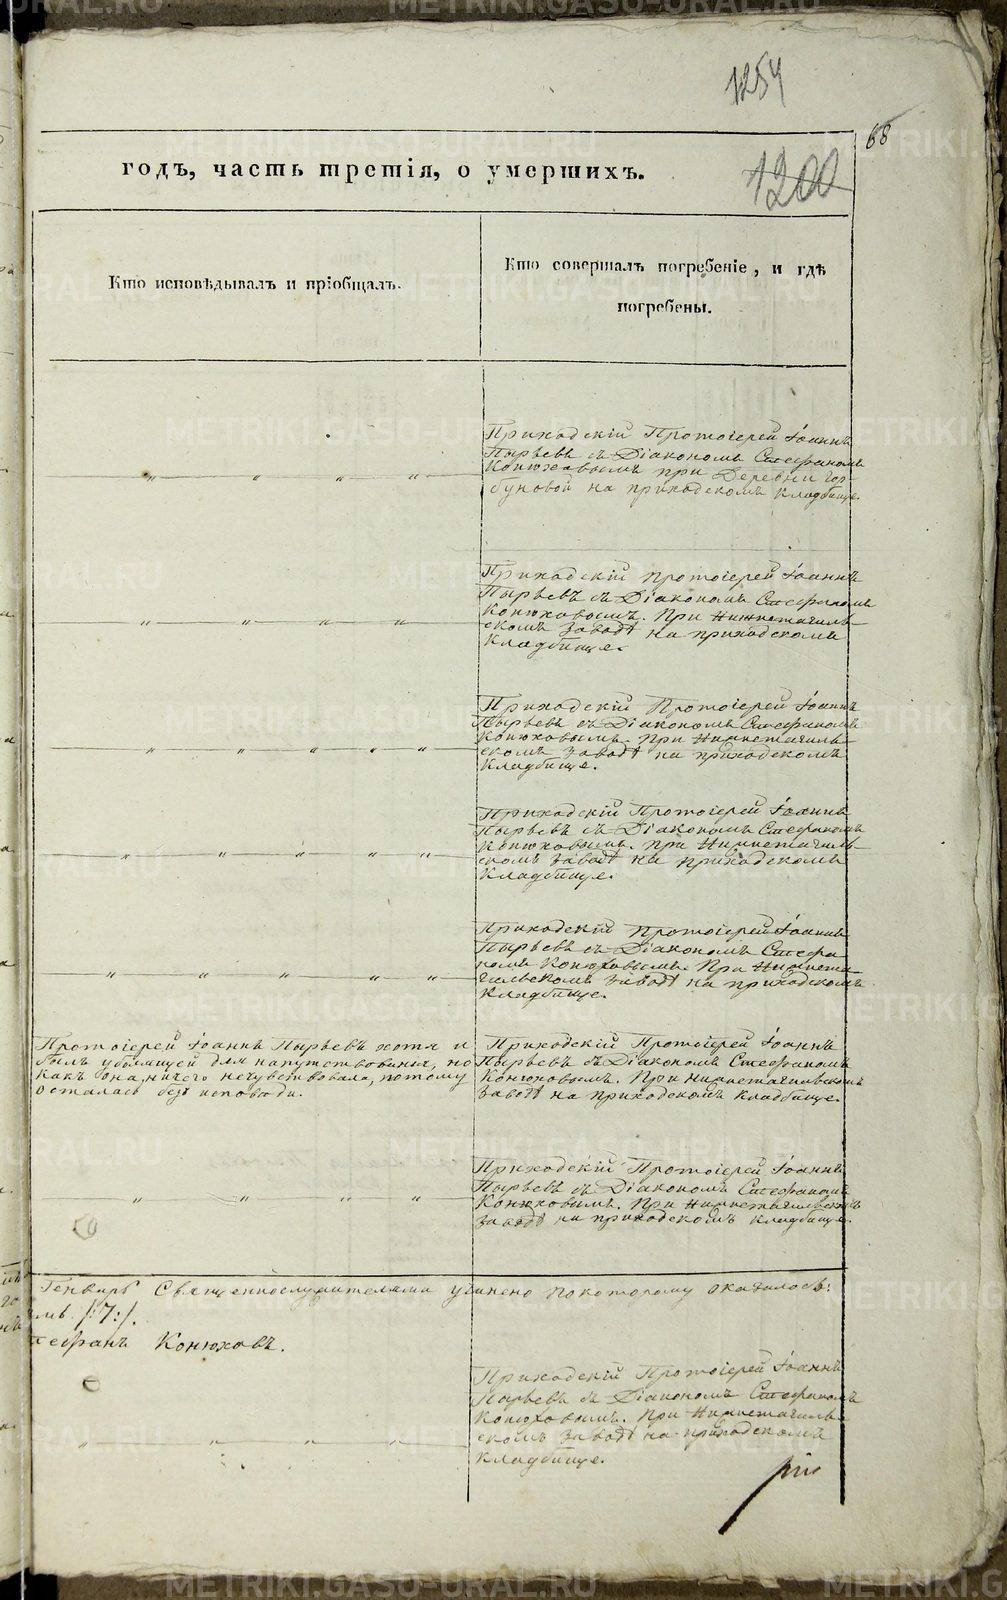 1254
68
годъ, часть третія, о умершихъ.
1200
Кто исповѣдывалъ и пріобщалъ.
Кто совершалъ погребеніе, и гдѣ
погребены.
Приходскій Протоіерей Іоаннъ
Пырьевъ съ Діакономъ Стефаномъ
Конюховымъ при Деревни Гор-
буновой на приходскомъ кладбище.
" " " "
Приходскій Протоіерей Іоаннъ
Пырьевъ съ Діакономъ Стефаномъ
Конюховымъ. При Нижнетагиль-
скомъ заводѣ на приходскомъ
кладбище.
" " " "
Приходскій Протоіерей Іоаннъ
Пырьевъ съ Діакономъ Стефаномъ
Конюховымъ. При Нижнетагиль-
скомъ заводѣ на приходскомъ
кладбище.
" " " " "
Приходскій Протоіерей Іоаннъ
Пырьевъ съ Діакономъ Стефаномъ
Конюховымъ. При Нижнетагиль-
скомъ заводѣ на приходскомъ
кладбище.
" " " " "
Приходскій Протоіерей Іоаннъ
Пырьевъ съ Діакономъ Стефа
номъ Конюховымъ. При Нижнета-
гильскомъ заводѣ на приходскомъ
кладбище.
" " " " "
Протоіерей Іоаннъ Пырьевъ хотя и
былъ у болящей для напутствованія, но
какъ она, ничего нечувствовала, потому
осталась безъ исповѣди.
Приходскій Протоіерей Іоаннъ
Пырьевъ съ Діакономъ Стефаномъ
Конюховымъ. При Нижнетагильскомъ
заводѣ на приходскомъ кладбище.
Приходскій Протоіерей Іоаннъ
Пырьевъ съ Діакономъ Стефаномъ
Конюховымъ. При Нижнетагильскомъ
заводѣ на приходскомъ кладбище.
" " " "
Генварь Священнослужителями учинено покоторому оказалось:
/:7:/.
Стефанъ Конюховъ.
Приходскій Протоіерей Іоаннъ
Пырьевъ съ Діакономъ Стефаномъ
Конюховымъ. При Нижнетагиль-
скомъ заводѣ на приходскомъ
кладбище.
" " " "
METRIKI.GASO-URAL.RU